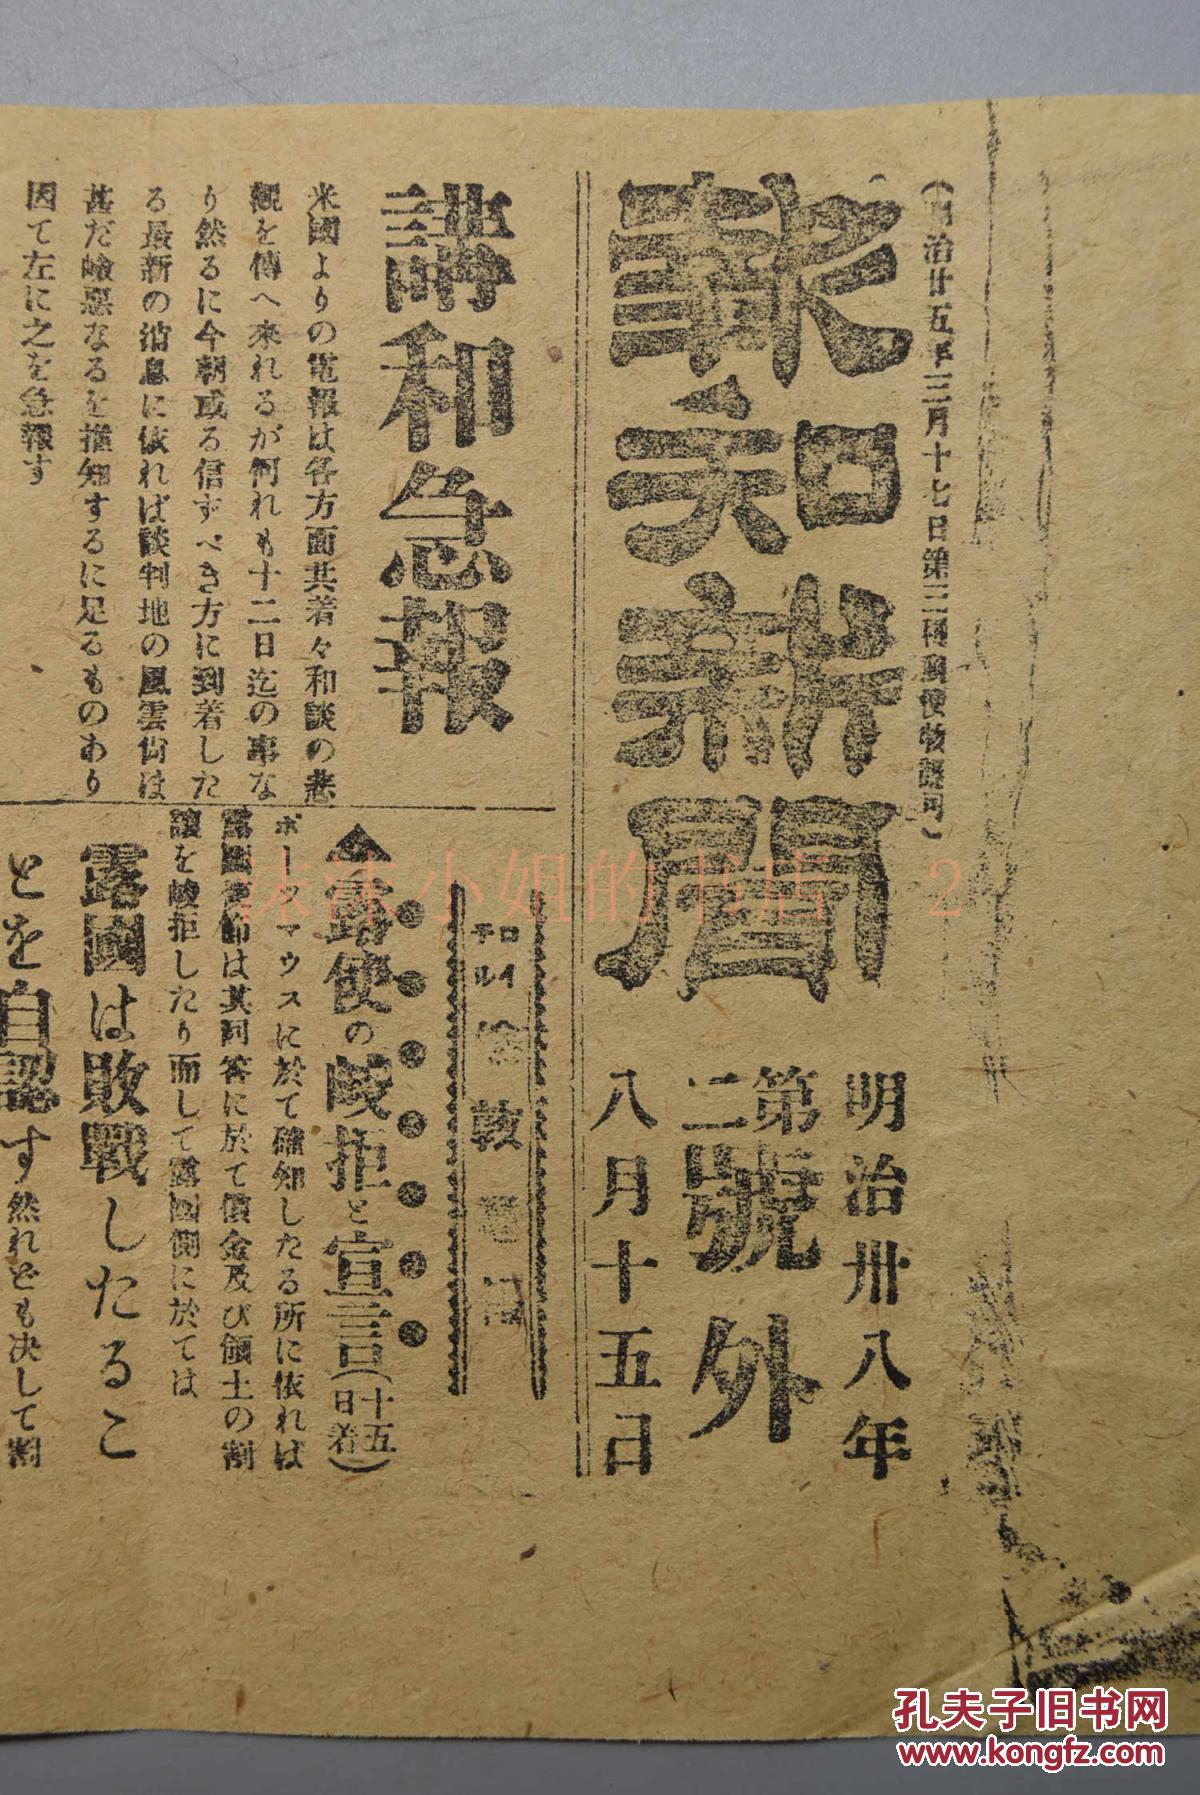 (明治廿五年三月十七日第三種郵便物認可)
報知新聞
明治卅八年
第二號外
八月十五日
講和急報
米國よりの電報は各方面共着々和談の悲
觀を傳へ来れるが何れも十二日迄の事な
り然るに今朝或る信ずべき方に到着した
る最新の消息に依れば談判地の風雲尙は
甚だ嶮惡なるを推知するに足るものあり
因て左に之を急報す
ロイテル倫敦電報
露使の峻拒と宣言(十五日着)
ポーツマウスに於て確知したる所に依れば
露國は其回答に於て償金及び領土の割
讓を峻拒したり而して露國側に於ては
露國は敗戰したるこ
とを自認す然れども決して割
沫沫小姐的书店 2
孔夫子旧书网
www.kongfz.com